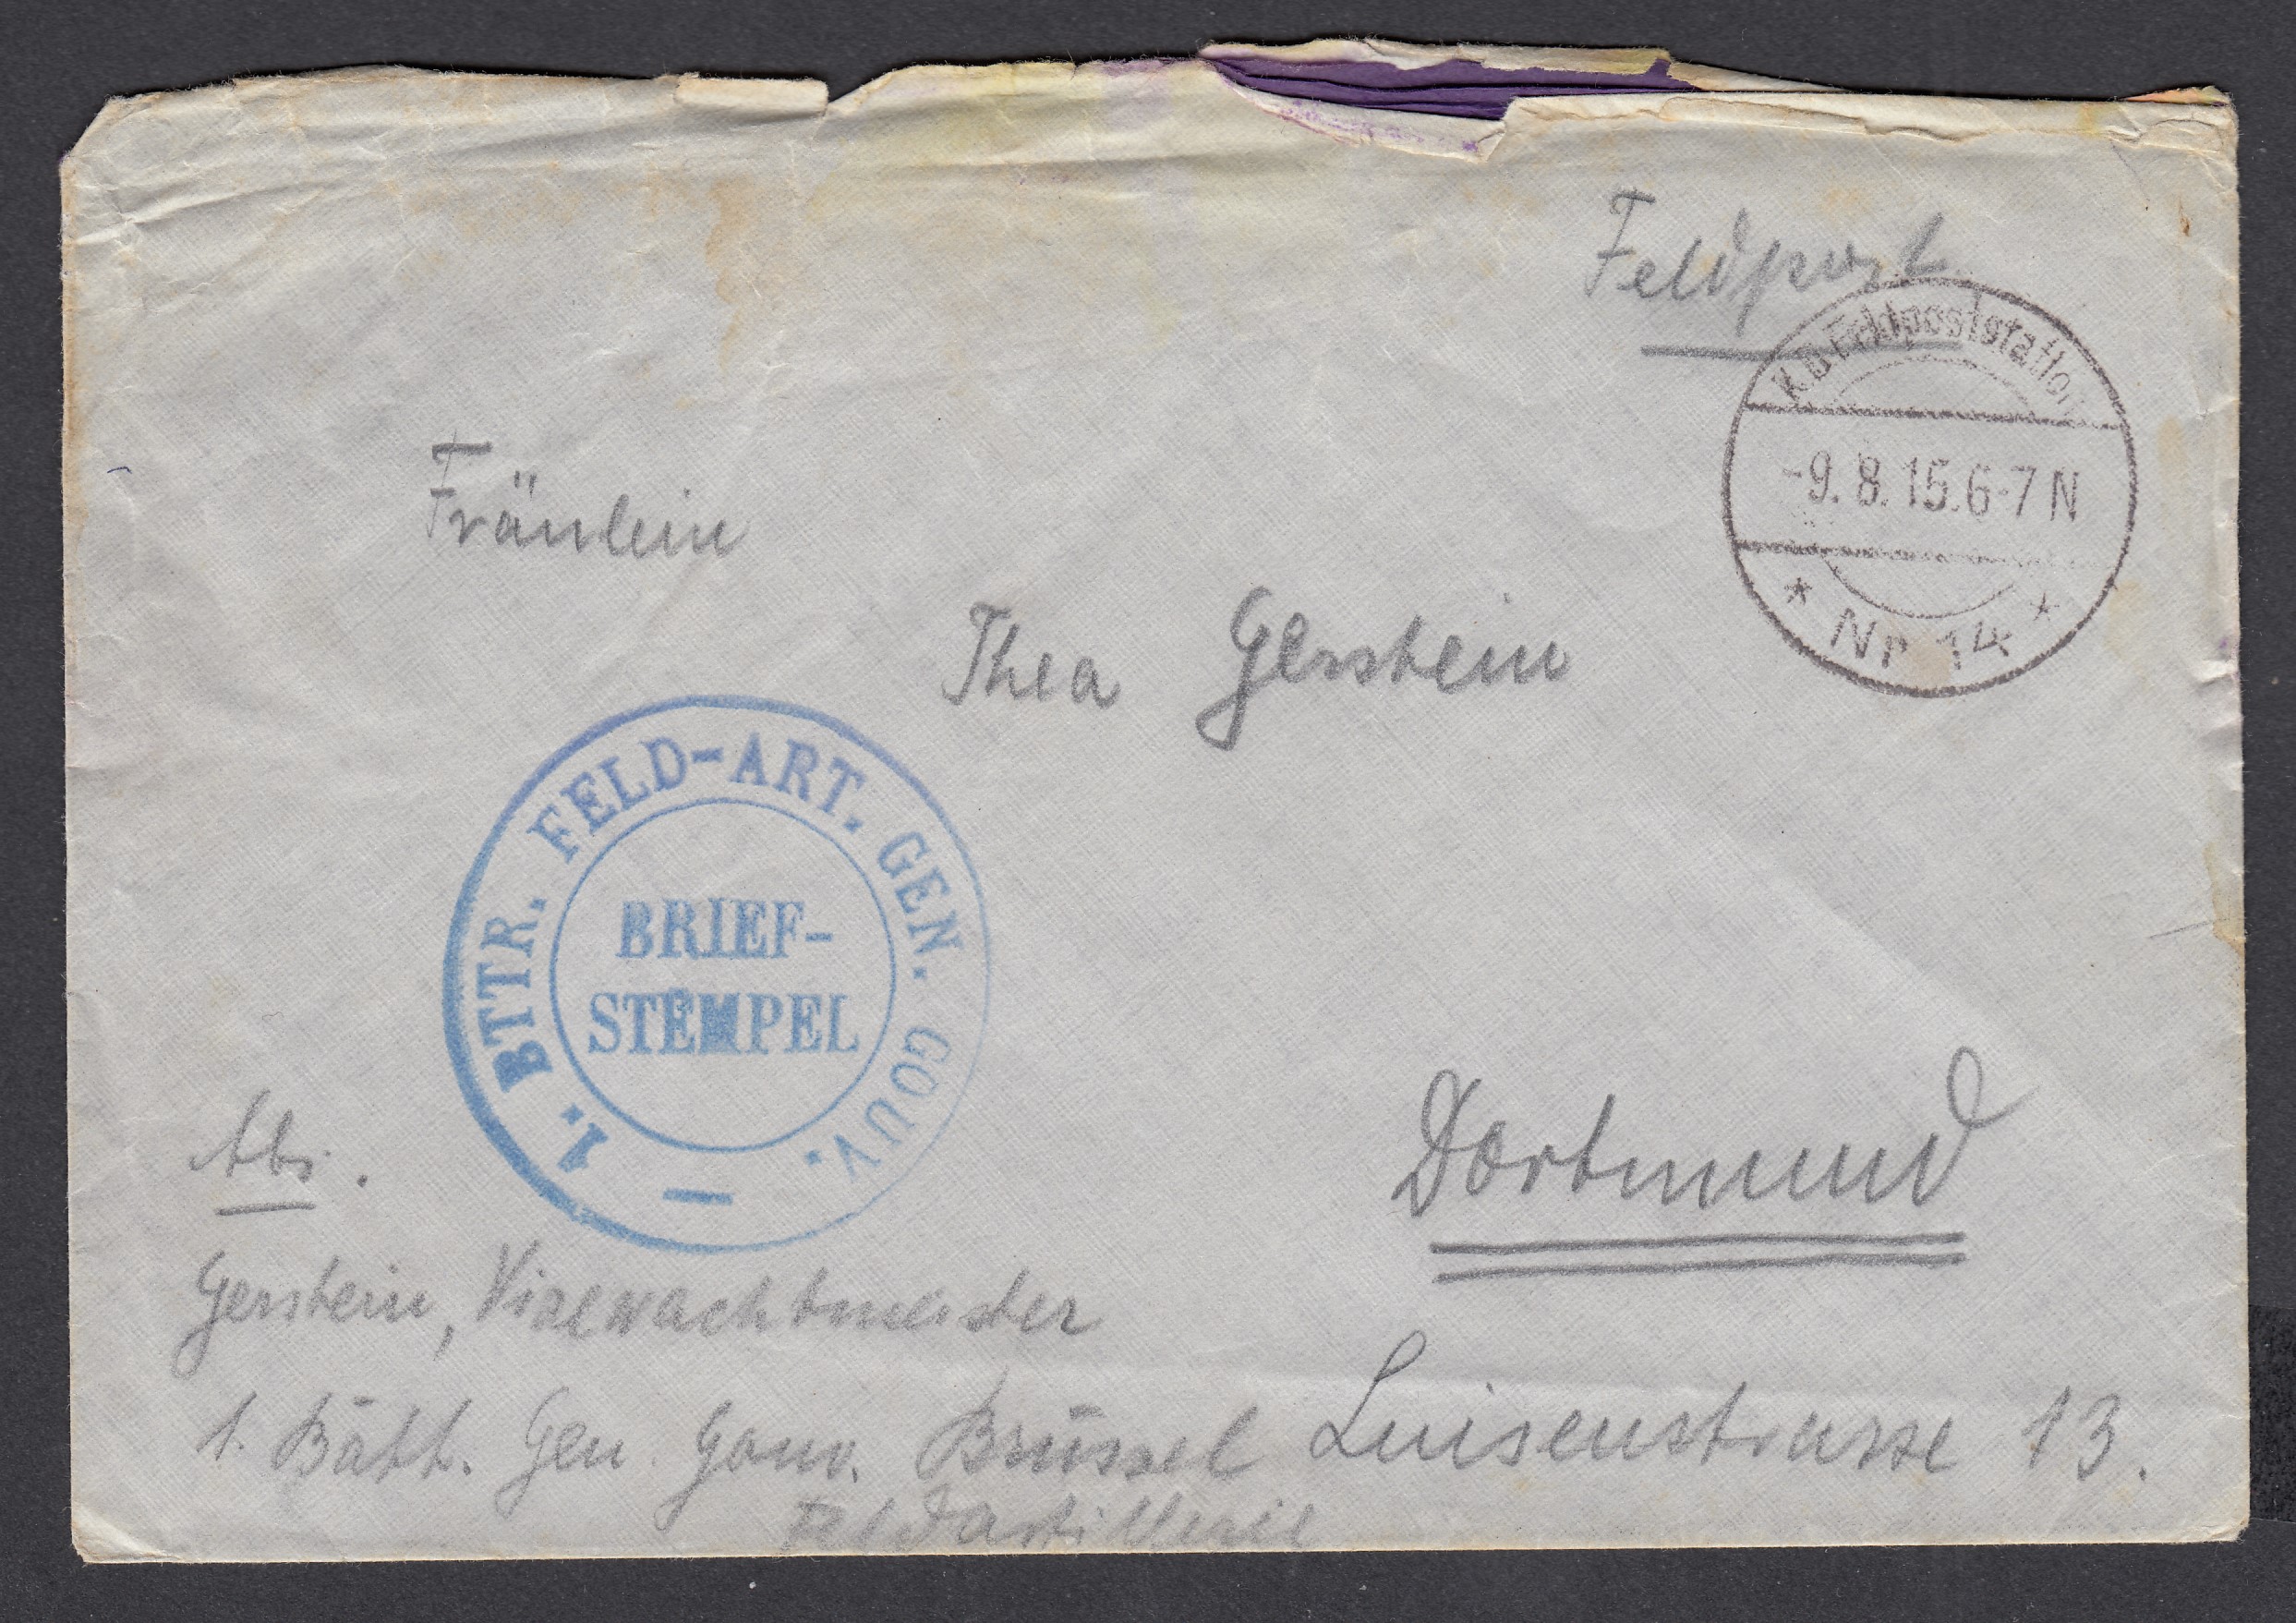 Feldpost
K.D.Feldpoststation
-9.8.15.6-7N
* Nr 14 *
Fräulein
Thea Gerstein
1. BTTR. FELD-ART. GEN. GOUV.
BRIEF-
STEMPEL
Dortmund
Luisenstrasse 13.
Abs.
Gerstein, Vizewachtmeister
1. Bätt. Gen. Gouv. Brüssel
Feldartillerie